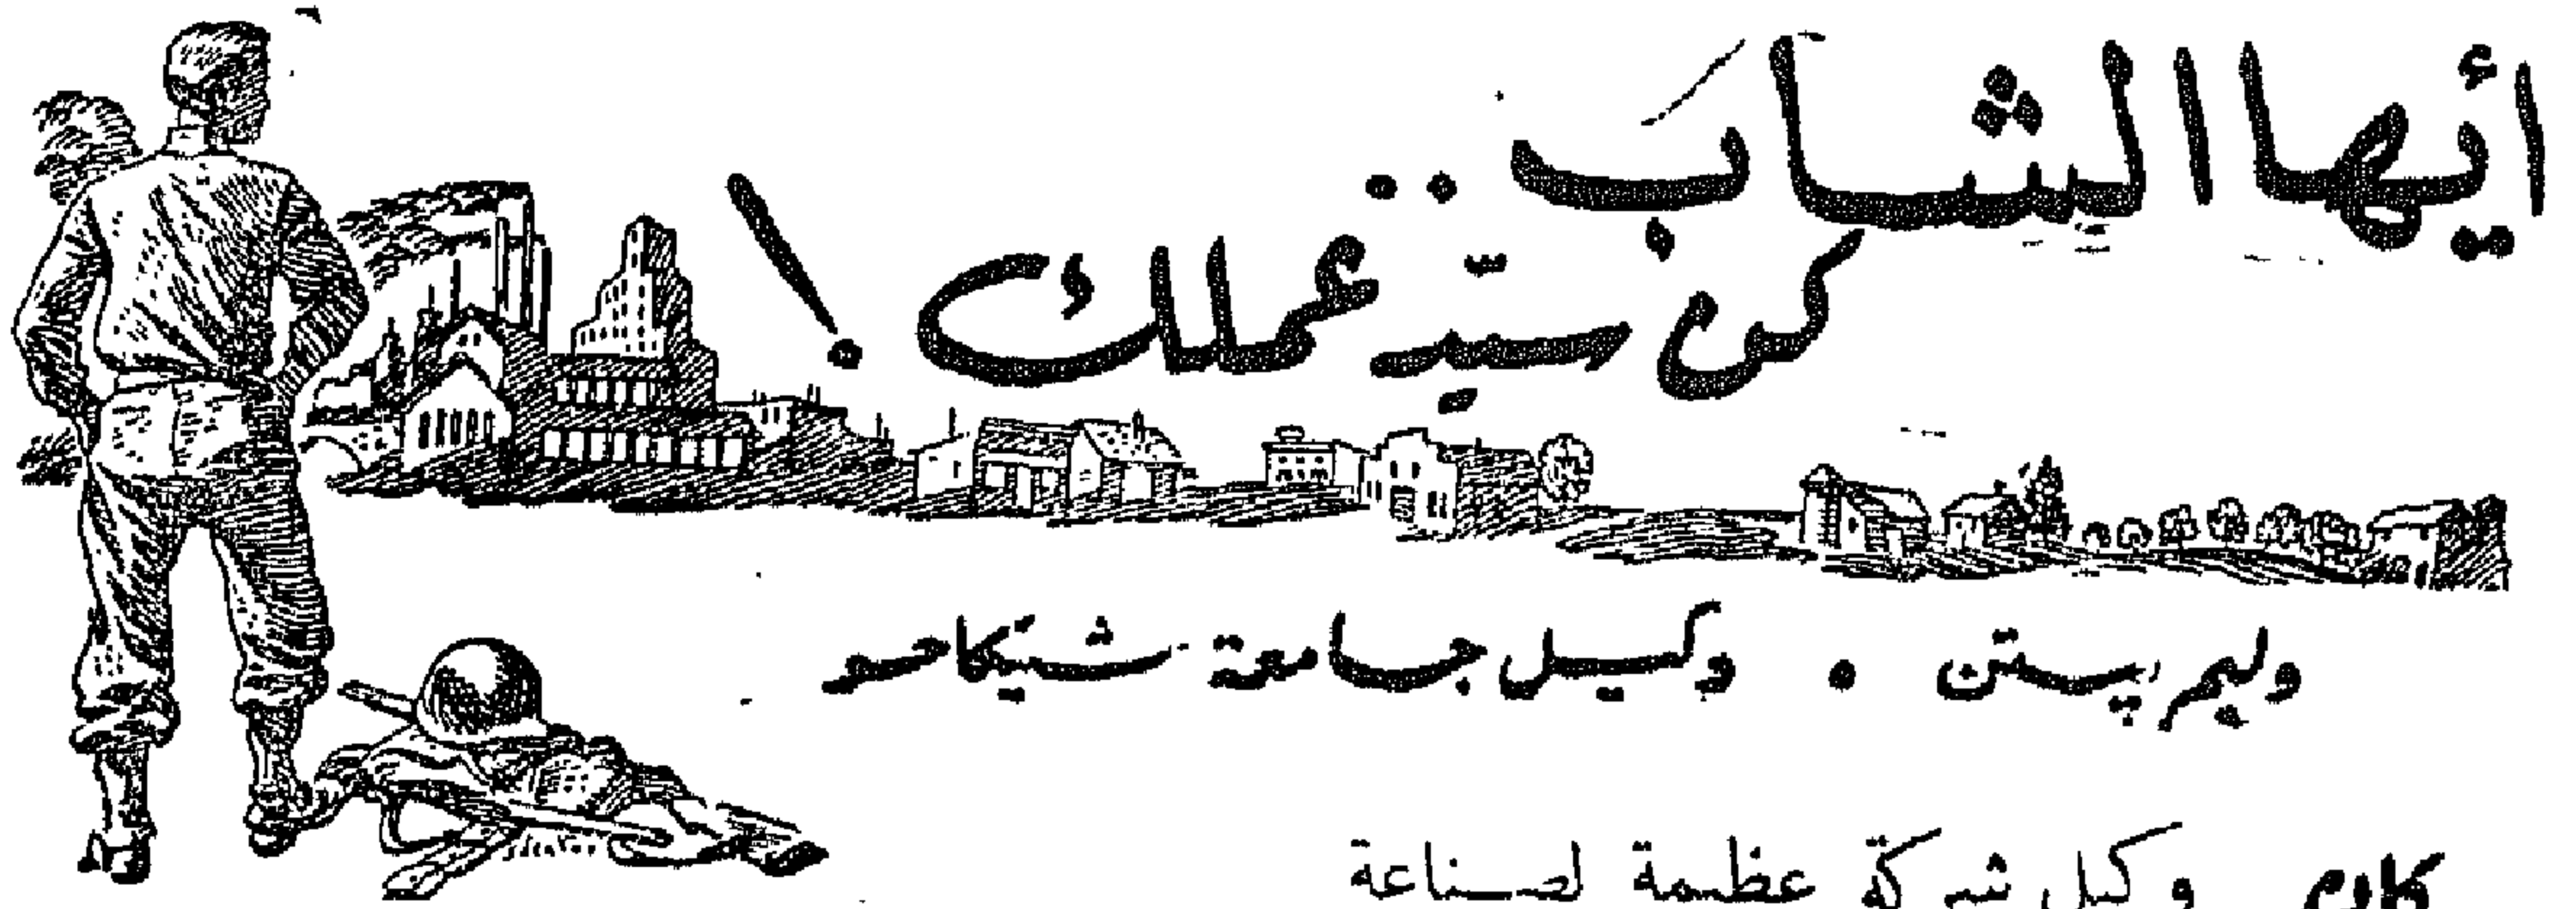 أيها الشاب ..
كن سيّد عملك !
وليم پستن • وكيل جامعة شيكاجو
وكيل شركة عظيمة لصناعة